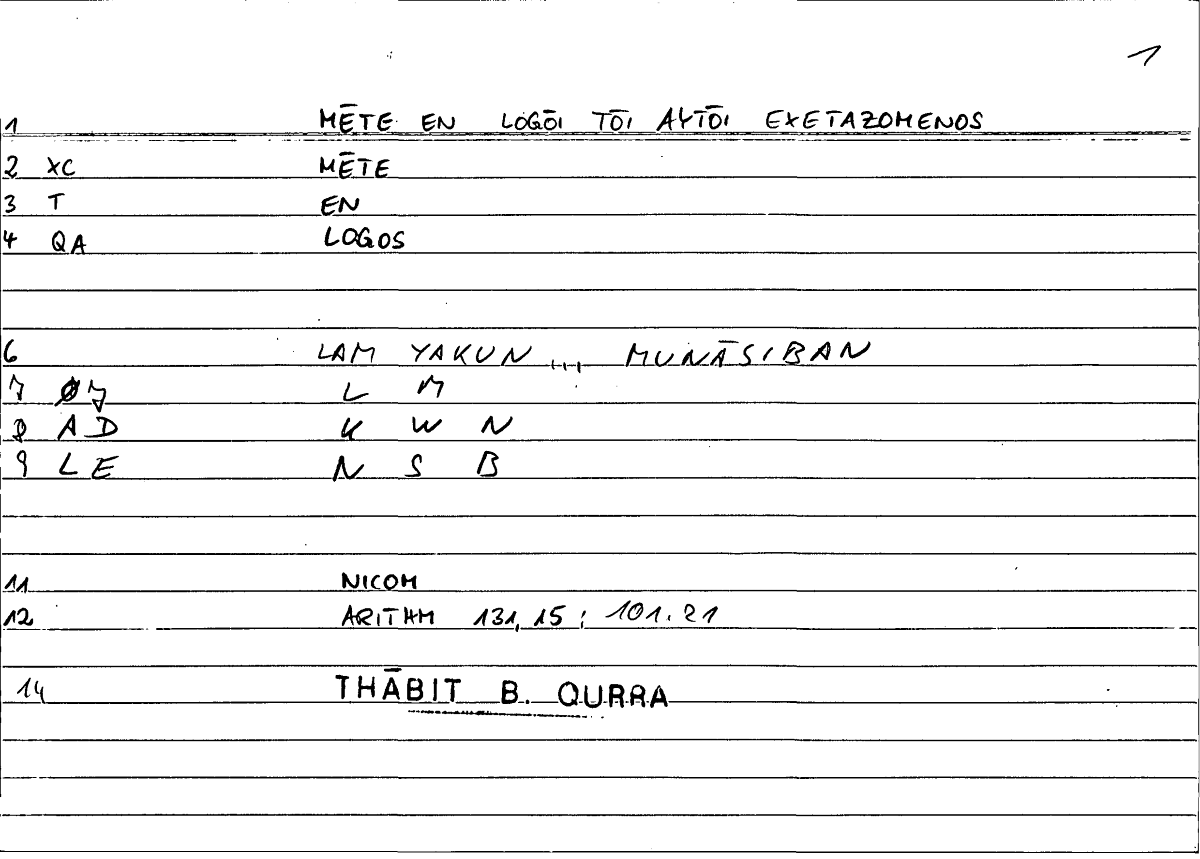 1
1 MĒTE EN LOGŌI TŌI AYTŌI EXETAZOMENOS
2 XC MĒTE
3 T EN
4 QA LOGOS
6 LAM YAKUN ... MUNĀSIBAN
7 07 L M
8 AD K W N
9 LE N S B
11 NICOM
12 ARITHM 131,15 ; 101.21
14 THĀBIT B. QURRA